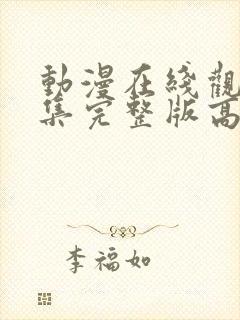 動漫在綫觀
集完整版高
李福如